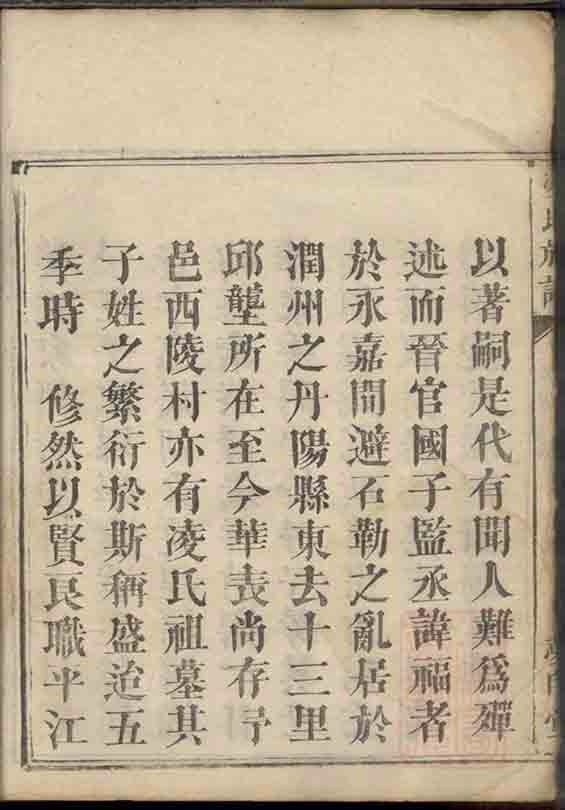 以著嗣是代有聞人難爲殫
述而晉官國子監丞諱福者
於永嘉間避石勒之亂居於
潤州之丹陽縣東去十三里
邱壟所在至今華表尚存
邑西陵村亦有凌氏祖墓其
子姓之繁衍於斯稱盛迨五
季時 修然以賢良職平江